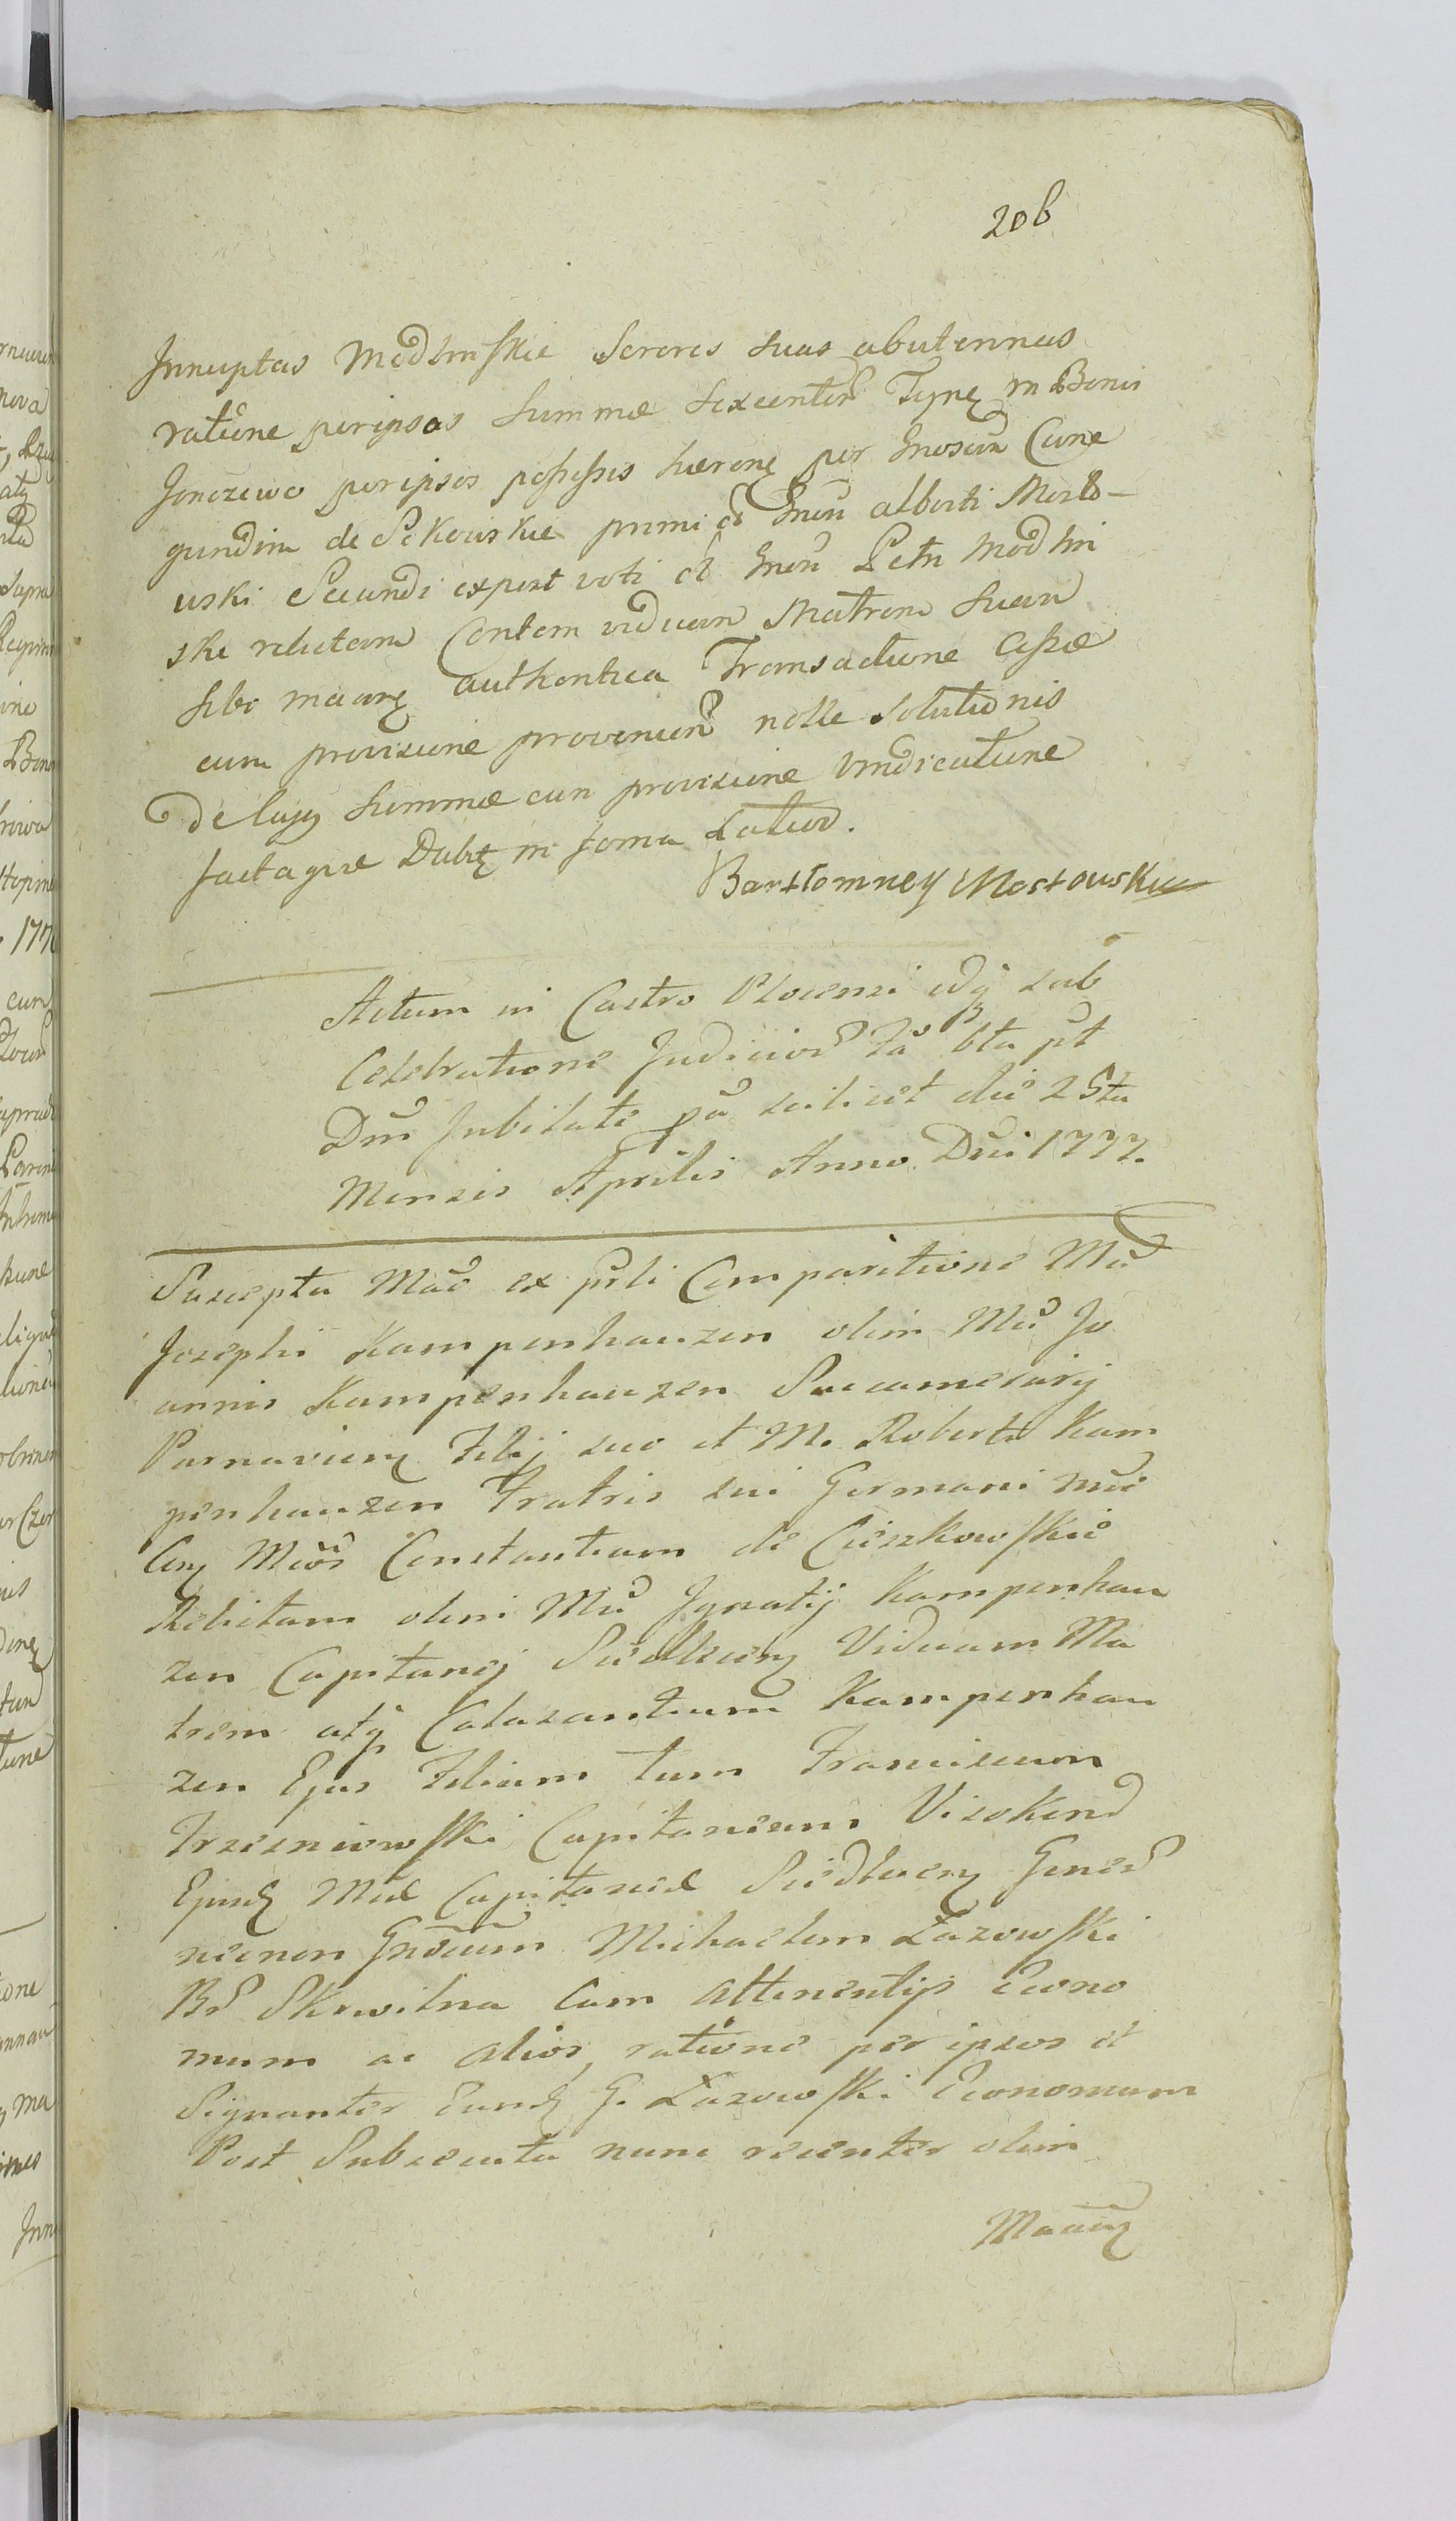 206
Innuptas Modlinskie Sorores suas abutennus
ratione per ipsos Summæ Sexcentor Tynf in Bonis
Jonczewo per ipsos possessis hæren per Gnosam Cune
gundim de Sikorskie primi cŏ Gnōu Alberti Mosto-
uski Secundi expost voti cŏ Gnōu Petri Modlin
ski relictam Contem viduam Matrem Suam
sibi in authentica Transactione Cessæ
cum provisione provenien nolle Solutionis
De Cujus Summæ cum provisione vindicatione
factaque Dabit in forma Latior.
Barttomney Mostouski
Actum in Castro Plocensi idq sub
Celebratione Judicior Fā bta pt
Dm̄ Jubilate pā scilicet die 25ta
Mensis Aprilis Anno Dn̄i 1777.
Suscepta Mae ex pn̄li Comparitione M̄ci
Josephi Kampenhauzen olim M̄ci Jo
annis Kampenhauzen Succamerarij
Parnavien Filij suo et M. Roberti Kam
penhauzen Fratris sui Germani nn̄i
M̄cos Constantiam de Cieszkowskie
Relictam olim M̄ci Ignatij Kampenhau
zen Capitanej Siedlecen Viduam Ma
trem atq Calasantium Kampenhau
zen Ejus Filium tum Franciscum
Trzcinskowski Capitaneum Visoken
Ejusd M̄cæ Capitaneæ Siedlecen Gener
necnon Gn̄osum Michaelem Łazowski
Br̄ Skrwilna Cum attinentijs Econo
mum ac alios, ratione per ipsos et
Signanter Eund G. Łazowski Economum
Post Subsecuta nunc recenter olim